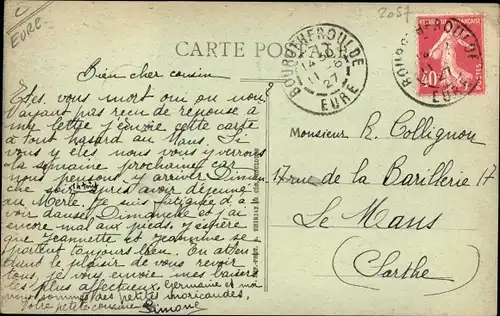 C
EURE
2057
CARTE POSTALE
BOURGTHEROULDE
11
27
EURE
BOURGTHEROULDE
11
27
EURE
POSTES
40
Bien cher cousin
Êtes vous mort oui ou non?
N'ayant pas reçu de réponse à
my lettre j'envoie cette carte
à tout hasard au Mans. Si
vous y êtes nous vous y verrons
la semaine prochaine car
nous pensons y arriver Diman
che soir après avoir déjeuné
au Merle. Je suis fatiguée d'a
voir dansé Dimanche et j'ai
encore mal aux pieds. J'espère
que Jeannette et Jeannine se
portent toujours bien. On attendant
dans le plaisir de vous revoir
tous, je vous envoie mes baisers
les plus affectueux. Germaine et moi
nous sommes des petites moricaudes,
Votre petite cousine
Simone
Monsieur R. Collignon
17 rue de la Barillerie 17
Le Mans
(Sarthe)